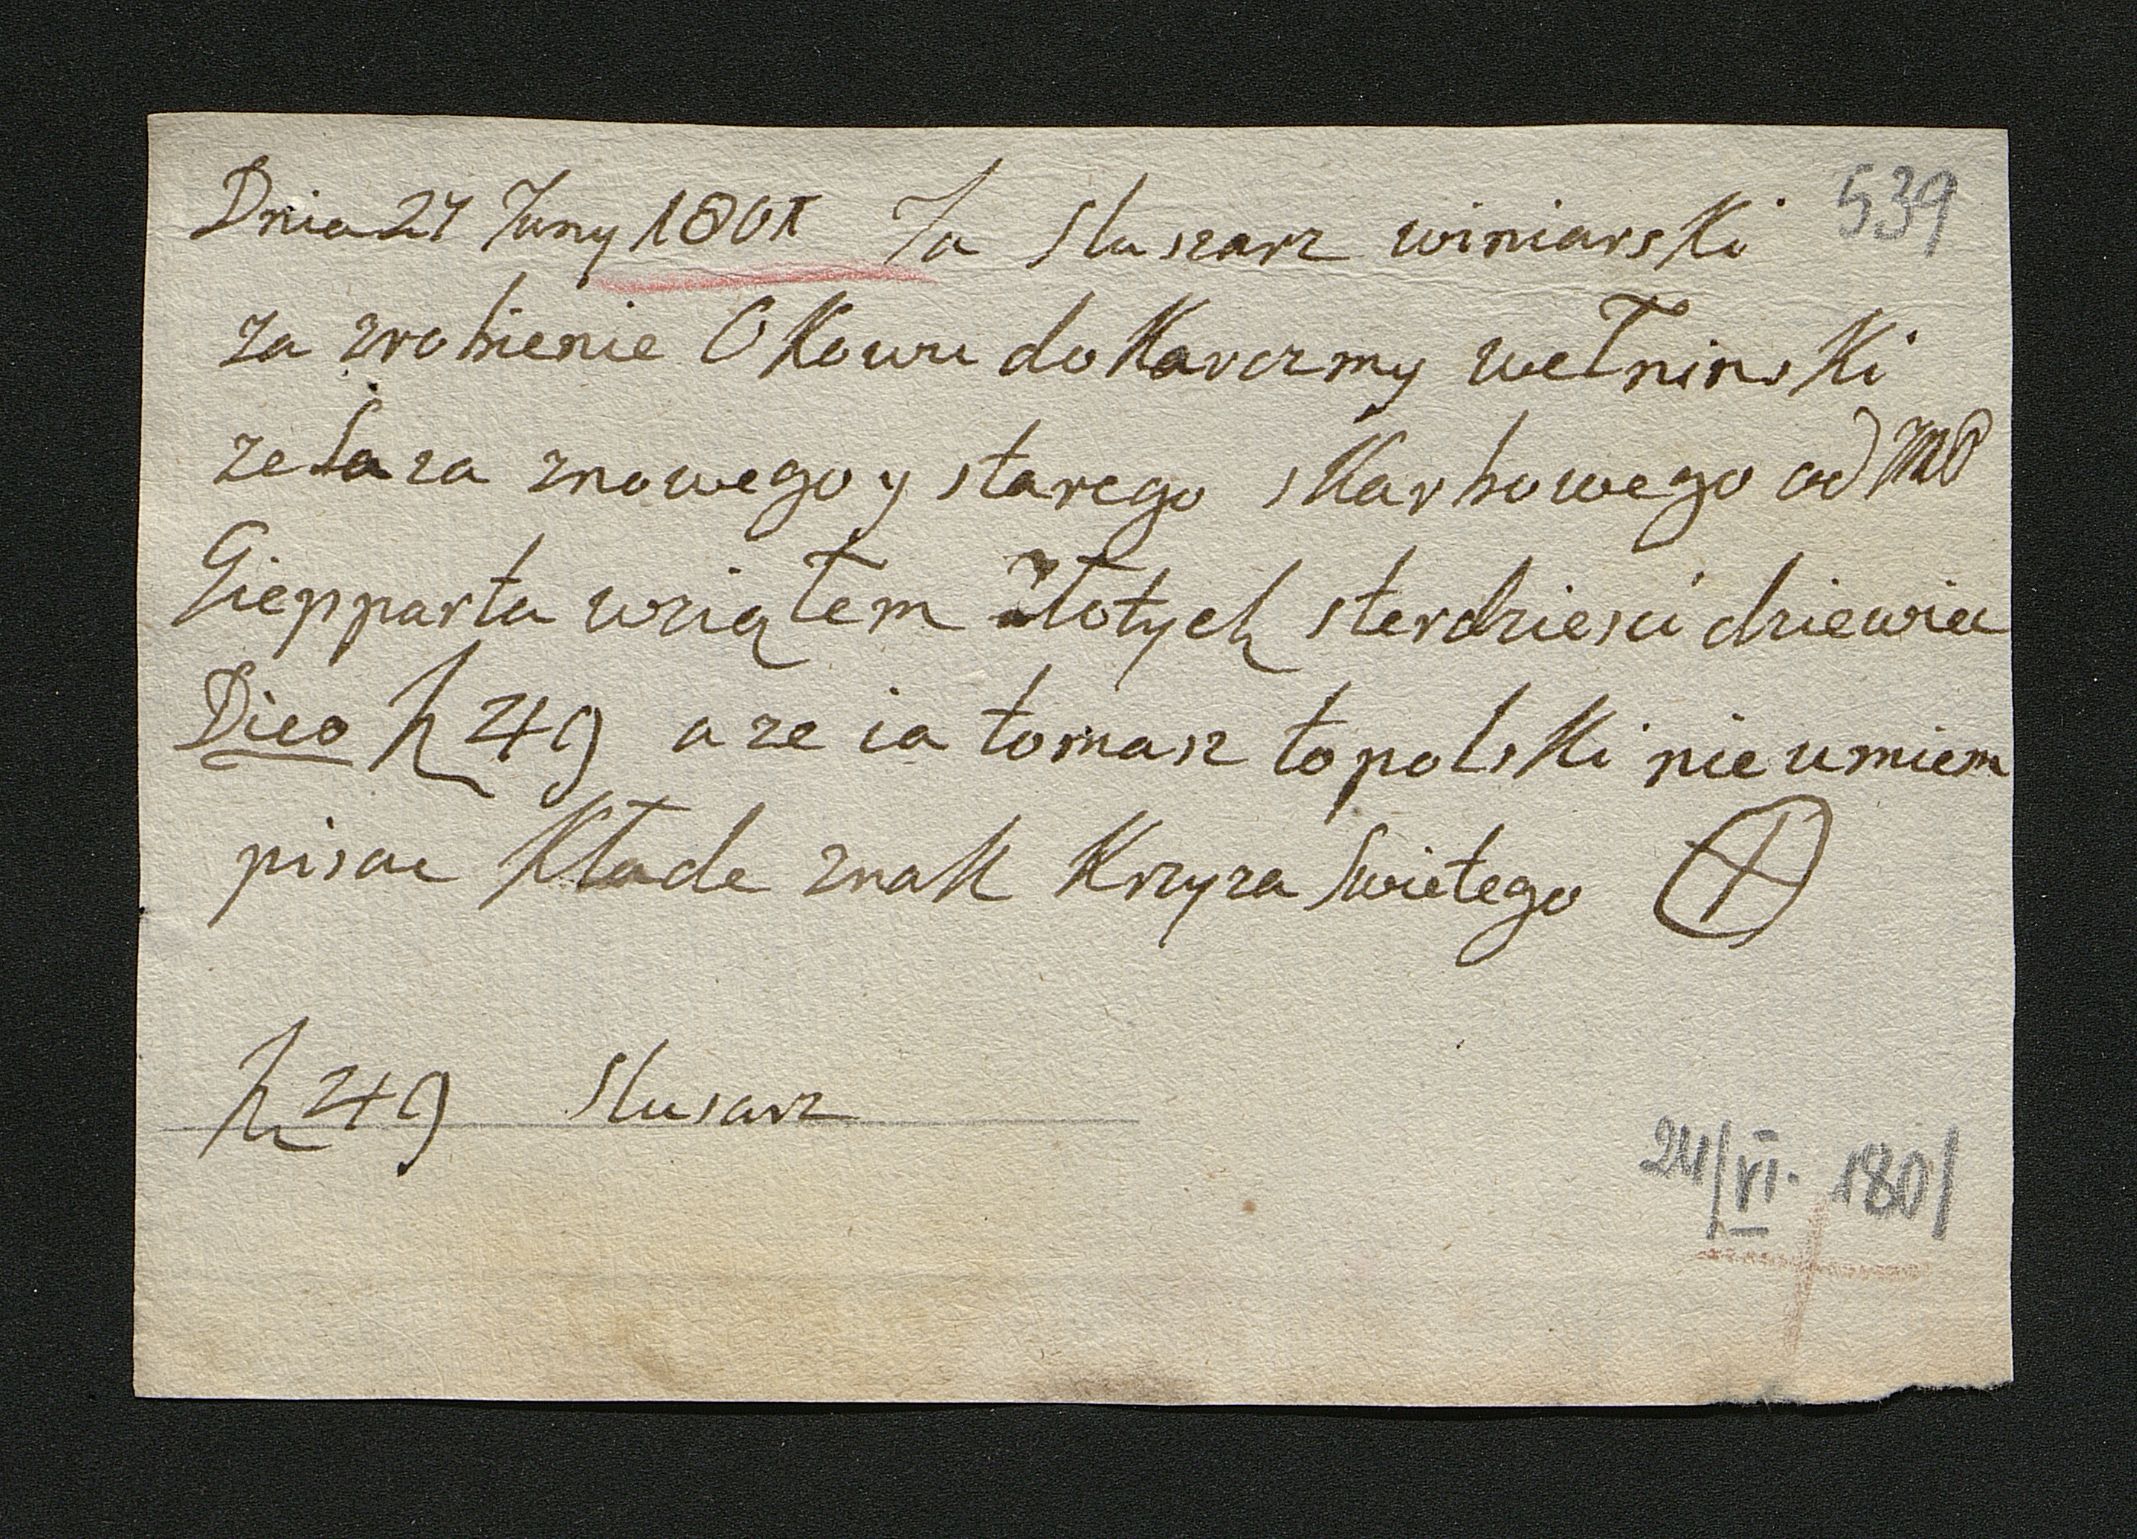 Dnia 24 Juny 1801 Ja Sluszarz winiarski 539
za zrobienie Okowu do Karczmy wełninski
zelaza znowego y starego skarbowego od JMP
Giepparta wziąłem złotych sterdziesci dziewiec
Dico fl 49 a ze ia tomasz topolski nie umiem
pisac Kłade znak Krzyza Swietego
fl 49 Slusarz
24/VI. 1801